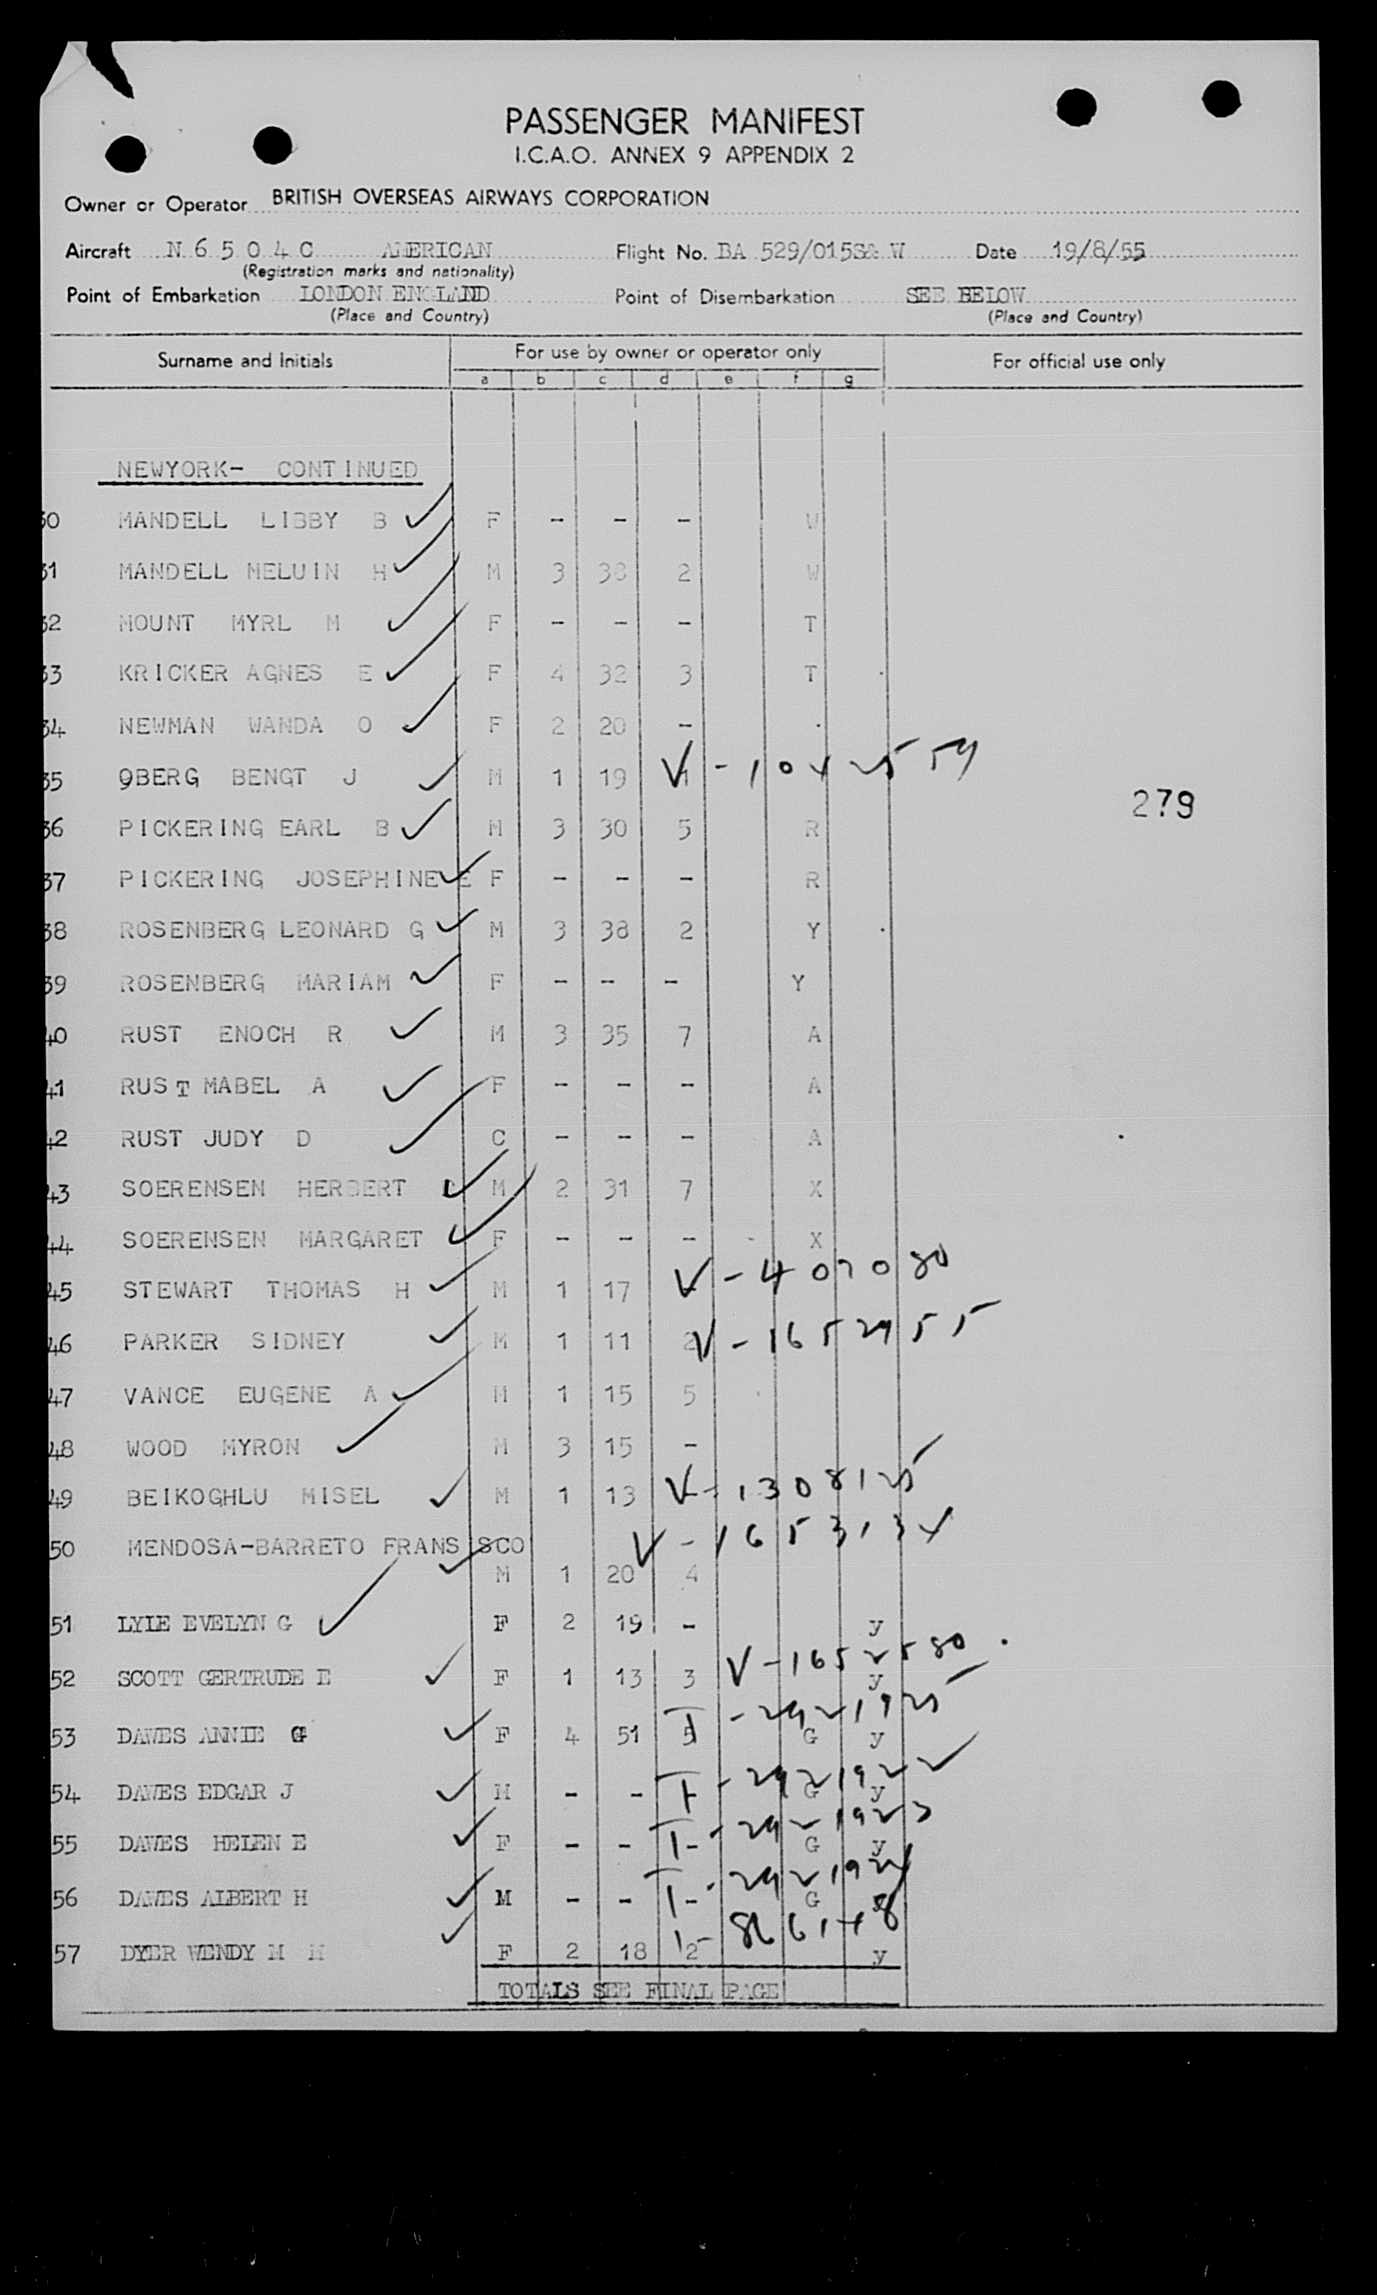 PASSENGER MANIFEST
I.C.A.O. ANNEX 9 APPENDIX 2
Owner or Operator BRITISH OVERSEAS AIRWAYS CORPORATION
Aircraft N 6 5 0 4 C AMERICAN Flight No. BA 529/015S& W Date 19/8/55
(Registration marks and nationality)
Point of Embarkation LONDON ENGLAND Point of Disembarkation SEE BELOW
(Place and Country) (Place and Country)
Surname and Initials For use by owner or operator only For official use only
a b c d e f g
NEWYORK- CONTINUED
30 MANDELL LIBBY B F - - - W
31 MANDELL MELUIN H M 3 38 2 W
32 MOUNT MYRL M F - - - T
33 KRICKER AGNES E F 4 32 3 T
34 NEWMAN WANDA O F 2 20 -
35 9BERG BENGT J M 1 19
279
36 PICKERING EARL B M 3 30 5 R
37 PICKERING JOSEPHINE E F - - - R
38 ROSENBERG LEONARD G M 3 38 2 Y
39 ROSENBERG MARIAM F - - - Y
40 RUST ENOCH R M 3 35 7 A
41 RUST MABEL A F - - - A
42 RUST JUDY D C - - - A
43 SOERENSEN HERBERT M 2 31 7 X
44 SOERENSEN MARGARET F - - - X
45 STEWART THOMAS H M 1 17 V-407080
46 PARKER SIDNEY M 1 11 2 V-1652955
47 VANCE EUGENE A M 1 15 5
48 WOOD MYRON M 3 15 -
49 BEIKOGHLU MISEL M 1 13 V-1308125
50 MENDOSA-BARRETO FRANSISCO V-1653134
M 1 20 4
51 LYLE EVELYN G F 2 19 - y
52 SCOTT GERTRUDE E F 1 13 3 V-1652580 y
53 DAWES ANNIE G F 4 51 5 T-2921925 G y
54 DAWES EDGAR J M - - T-2921922 G y
55 DAWES HELEN E F - - - T-2921923 G y
56 DAWES ALBERT H M - - - T-2921924 G
57 DYER WENDY M M F 2 18 2 y
TOTALS SEE FINAL PAGE